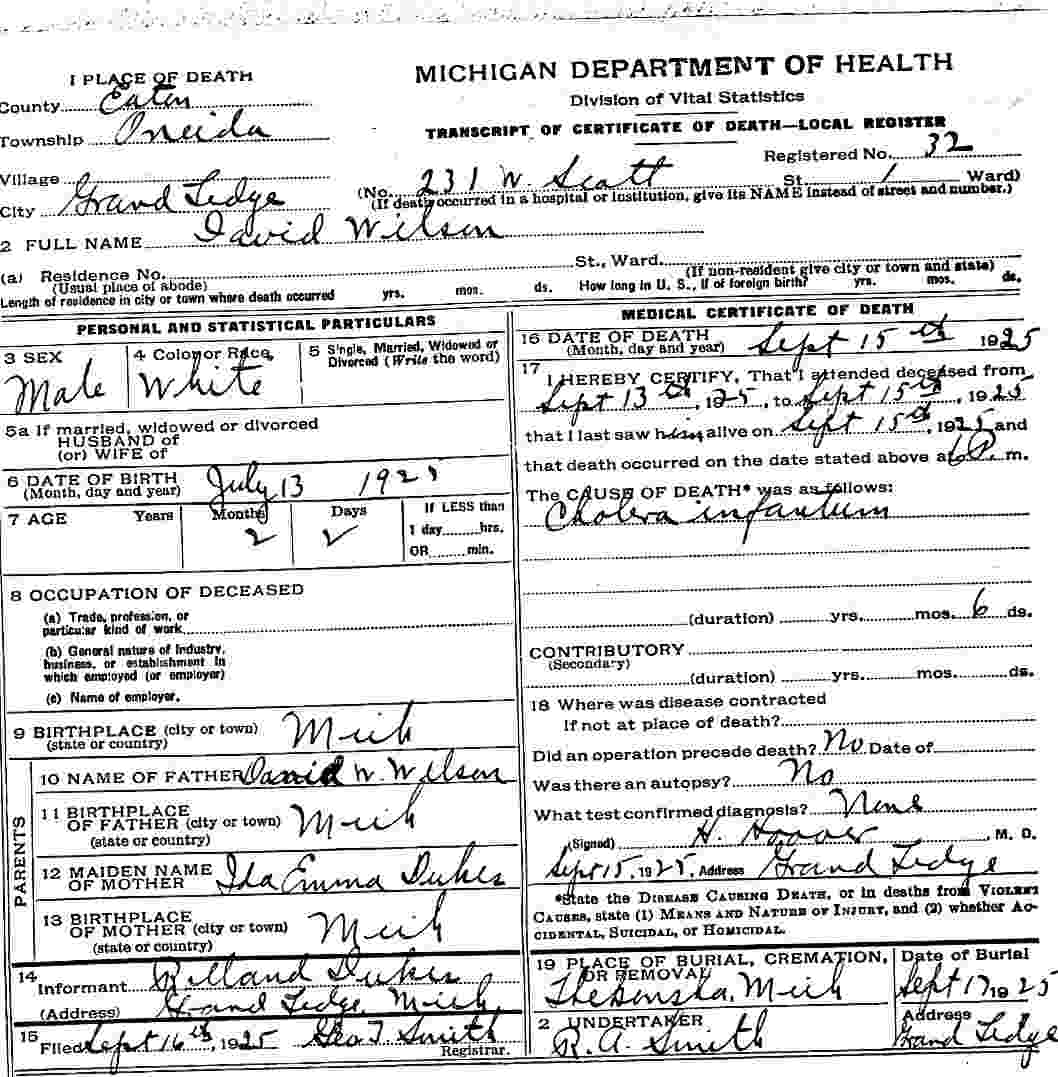 1 PLACE OF DEATH
County Eaton
Township Oneida
Village
City Grand Ledge
MICHIGAN DEPARTMENT OF HEALTH
Division of Vital Statistics
TRANSCRIPT OF CERTIFICATE OF DEATH—LOCAL REGISTER
Registered No. 32
(No. 231 W. Scott St 1 Ward)
(If death occurred in a hospital or institution, give its NAME instead of street and number.)
2 FULL NAME David Wilson
(a) Residence No. St., Ward.
(Usual place of abode) (If non-resident give city or town and state)
Length of residence in city or town where death occurred yrs. mos. ds. How long in U. S., if of foreign birth? yrs. mos. ds.
PERSONAL AND STATISTICAL PARTICULARS
3 SEX
Male
4 Color or Race
White
5 Single, Married, Widowed or
Divorced (Write the word)
5a If married, widowed or divorced
HUSBAND of
(or) WIFE of
6 DATE OF BIRTH
(Month, day and year) July 13 1925
7 AGE Years Months Days If LESS than
2 2 1 day hrs.
OR min.
8 OCCUPATION OF DECEASED
(a) Trade, profession, or
particular kind of work
(b) General nature of Industry,
business, or establishment in
which employed (or employer)
(c) Name of employer.
9 BIRTHPLACE (city or town)
(state or country) Mich
PARENTS
10 NAME OF FATHER David W. Wilson
11 BIRTHPLACE
OF FATHER (city or town)
(state or country) Mich
12 MAIDEN NAME
OF MOTHER Ida Emma Dukes
13 BIRTHPLACE
OF MOTHER (city or town)
(state or country) Mich
14
Informant Dukes
(Address) Grand Ledge, Mich.
15
Filed Sept 16th, 1925 Geo T. Smith
Registrar.
MEDICAL CERTIFICATE OF DEATH
16 DATE OF DEATH
(Month, day and year) Sept 15th 1925
17
I HEREBY CERTIFY, That I attended deceased from
Sept 13th, 1925, to Sept 15th, 1925
that I last saw him alive on Sept 15th, 1925 and
that death occurred on the date stated above at 6 P. m.
The CAUSE OF DEATH* was as follows:
Cholera infantum
(duration) yrs. mos. 6 ds.
CONTRIBUTORY
(Secondary)
(duration) yrs. mos. ds.
18 Where was disease contracted
If not at place of death?
Did an operation precede death? No Date of
Was there an autopsy? No
What test confirmed diagnosis? None
(Signed) H. Hoover, M. D.
Sept 15, 1925, Address Grand Ledge
*State the DISEASE CAUSING DEATH, or in deaths from VIOLENT
CAUSES, state (1) MEANS AND NATURE OF INJURY, and (2) whether AC-
CIDENTAL, SUICIDAL, OR HOMICIDAL.
19 PLACE OF BURIAL, CREMATION,
OR REMOVAL
Mich
Date of Burial
Sept 17 1925
2 UNDERTAKER
R. A. Smith
Address
Grand Ledge